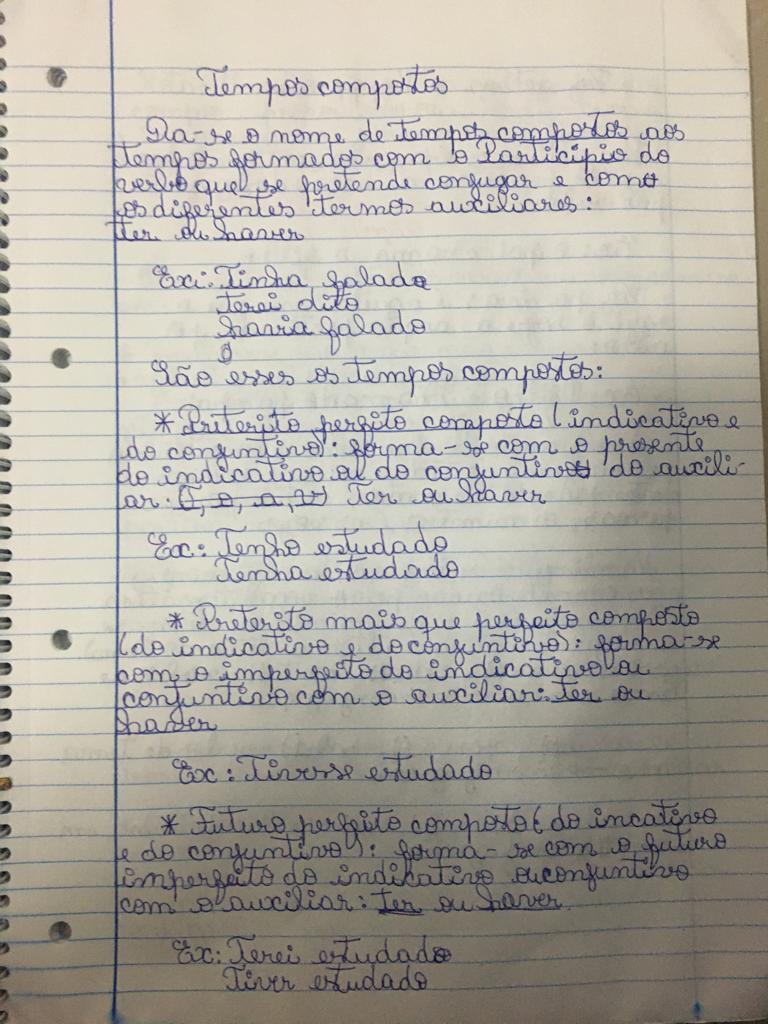 Tempos compostos
Da-se o nome de tempos compostos aos
tempos formados com o Participio do
verbo que se pretende conjugar e com
os diferentes termos auxiliares:
ter ou haver
Ex: Tinha falado
terei dito
havia falado
São esses os tempos compostos:
* Preterito perfeito composto (indicativo e
do conjuntivo): forma-se com o presente
do indicativo ou do conjuntivo do auxili-
ar. Ter ou haver
Ex: Tenho estudado
Tenha estudado
* Preterito mais que perfeito composto
(do indicativo e do conjuntivo): forma-se
com o imperfeito do indicativo ou
conjuntivo com o auxiliar: ter ou
haver
Ex: Tivesse estudado
* Futuro perfeito composto (do incativo
e do conjuntivo): forma-se com o futuro
imperfeito do indicativo ou conjuntivo
com o auxiliar: ter ou haver
Ex: Terei estudado
Tiver estudado